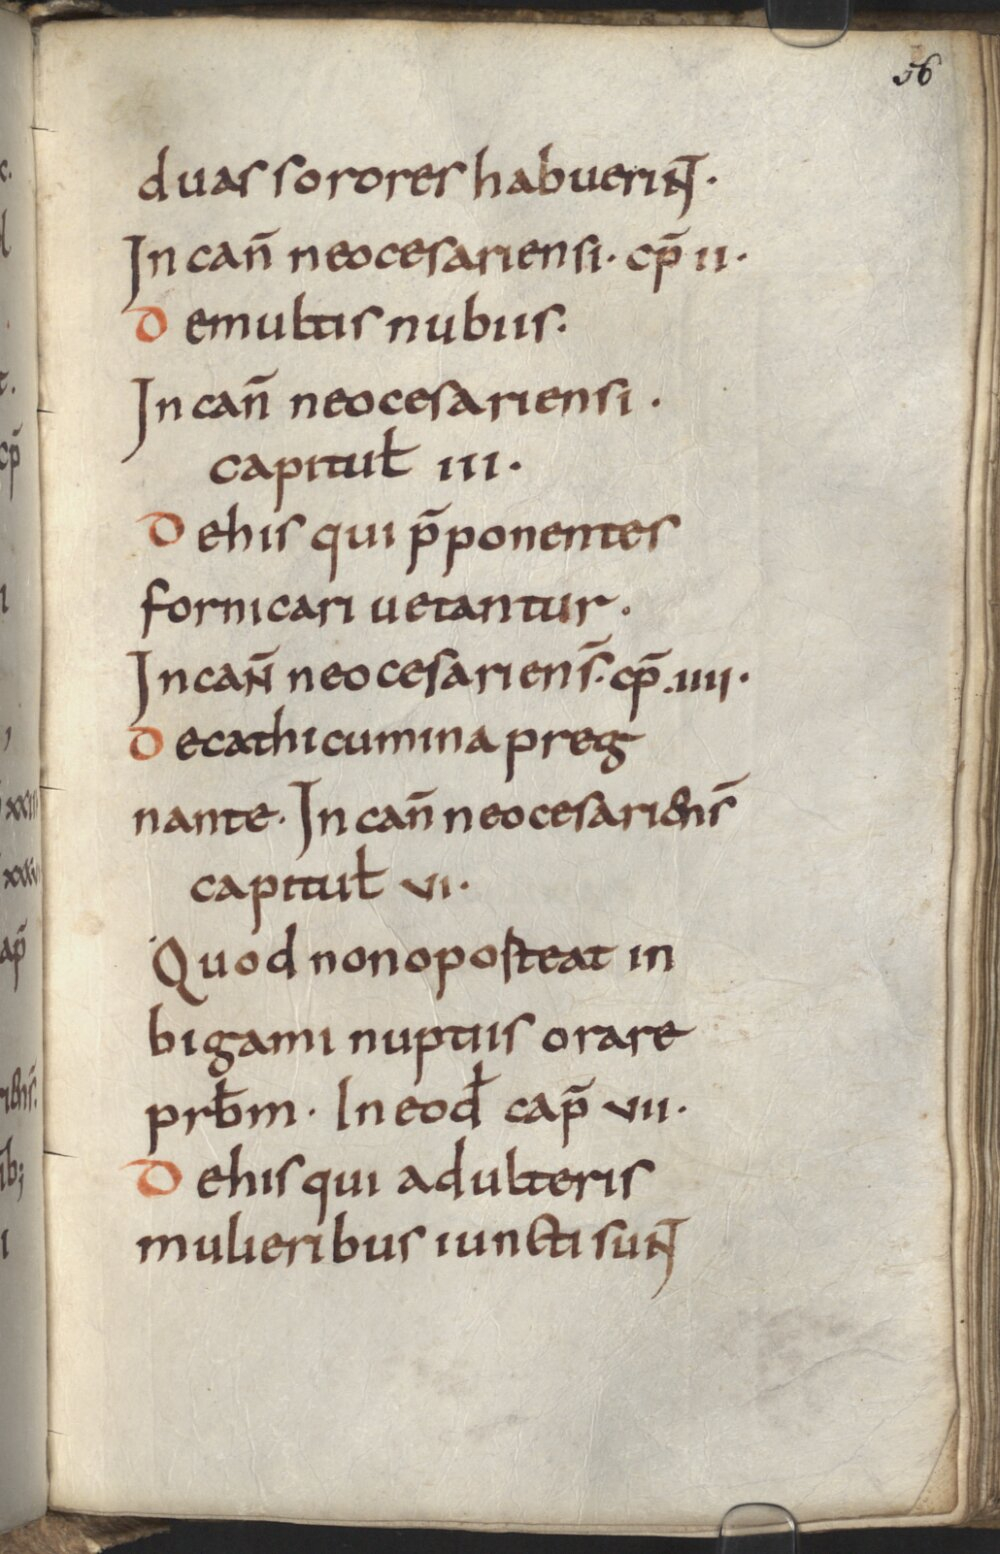 56
duas sorores habuerint·
In can̄ neocesariensi· cp̄ ii·
De multis nubiis·
In can̄ neocesariensi·
capitul̄ iii·
De his qui p̄ponentes
fornicari uetantur·
In can̄ neocesariens̄· cp̄ .iiii·
De cathicumina preg
nante· In can̄ neocesariens̄
capitul̄ vi·
Quod non oposteat in
bigami nuptiis orare
prb̄m· In eod̄ cap̄ vii·
De his qui adulteris
mulieribus iuncti sunt